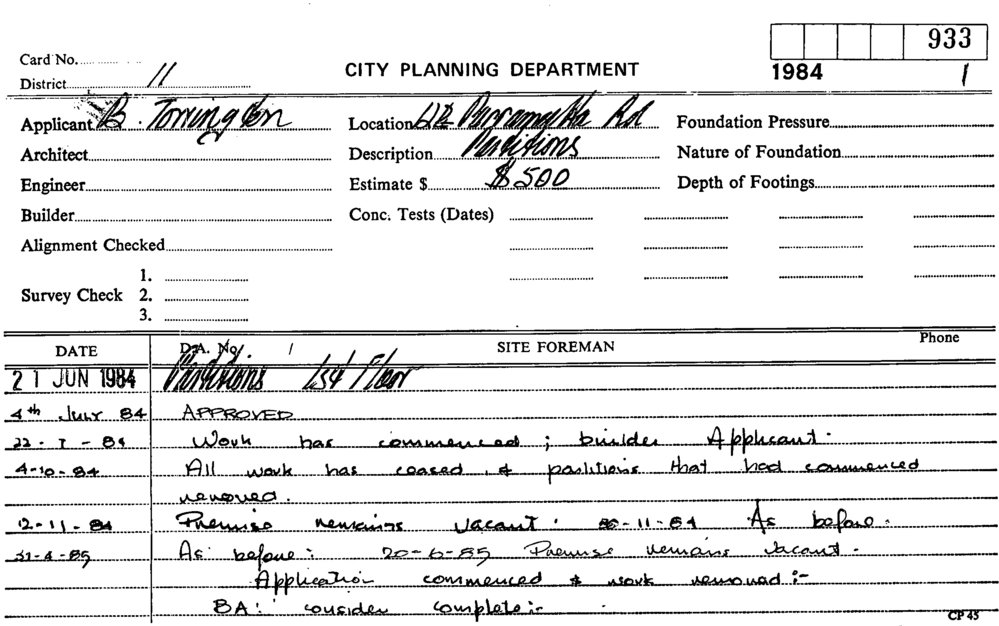 933
Card No.
1984 1
District 11
CITY PLANNING DEPARTMENT
Applicant B. Torrington Location Parramatta Rd Foundation Pressure
Architect Description Partitions Nature of Foundation
Engineer Estimate $ $500 Depth of Footings
Builder Conc. Tests (Dates)
Alignment Checked
1.
Survey Check 2.
3.
DATE D.A. No. / SITE FOREMAN Phone
21 JUN 1984 Partitions 1st Floor
4th July 84 APPROVED
22-7-84 Work has commenced ; builder Applicant.
4-10-84 All work has ceased & partitions that had commenced
removed.
12-11-84 Premise remains vacant. -11-84 As before.
-4-85 As before: 20-6-85 Premise remains vacant.
Application commenced & work removed :-
BA: consider complete :-
CP 45